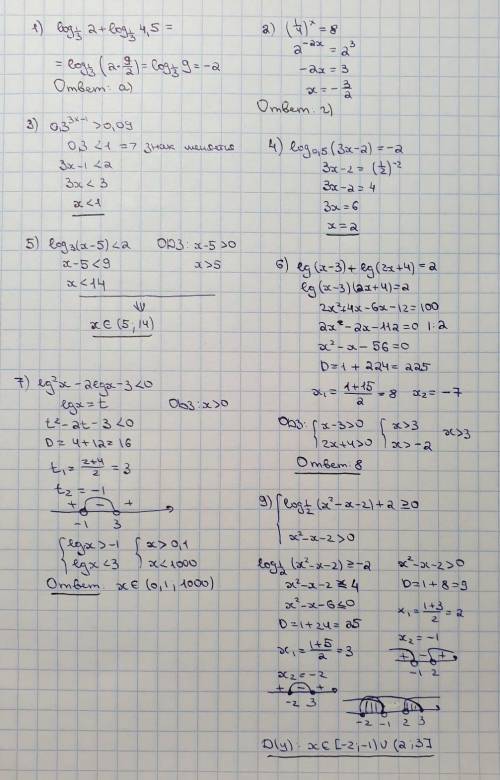 1) log_{1/3} 2 + log_{1/3} 4,5 =
= log_{1/3} (2 · 9/2) = log_{1/3} 9 = -2
Ответ: а)
2) (1/4)^x = 8
2^{-2x} = 2^3
-2x = 3
x = -3/2
Ответ: г)
3) 0,3^{3x-1} > 0,09
0,3 < 1 => знак
3x-1 < 2
3x < 3
x < 1
4) log_{0,5} (3x-2) = -2
3x-2 = (1/2)^{-2}
3x-2 = 4
3x = 6
x = 2
5) log_3 (x-5) < 2 ОДЗ: x-5 > 0
x-5 < 9 x > 5
x < 14
⇓
x ∈ (5; 14)
6) lg (x-3) + lg (2x+4) = 2
lg (x-3)(2x+4) = 2
2x²+4x-6x-12 = 100
2x²-2x-112 = 0 |:2
x²-x-56 = 0
D = 1 + 224 = 225
x₁ = (1+15)/2 = 8 x₂ = -7
ОДЗ: { x-3>0 { x>3 x>3
{ 2x+4>0 { x>-2
Ответ: 8
7) lg²x - 2lgx - 3 < 0
lgx = t ОДЗ: x>0
t²-2t-3 < 0
D = 4+12 = 16
t₁ = (2+4)/2 = 3
t₂ = -1
+ - +
-1 3
{ lgx > -1 { x > 0,1
{ lgx < 3 { x < 1000
Ответ: x ∈ (0,1; 1000)
9) { log_{1/2} (x²-x-2) + 2 ≥ 0
{ x²-x-2 > 0
log_{1/2} (x²-x-2) ≥ -2 x²-x-2 > 0
x²-x-2 ≤ 4 D = 1+8 = 9
x²-x-6 ≤ 0 x₁ = (1+3)/2 = 2
D = 1+24 = 25 x₂ = -1
x₁ = (1+5)/2 = 3 + - +
x₂ = -2 -1 2
+ - +
-2 3
-2 -1 2 3
D(y): x ∈ [-2; -1) ∪ (2; 3]